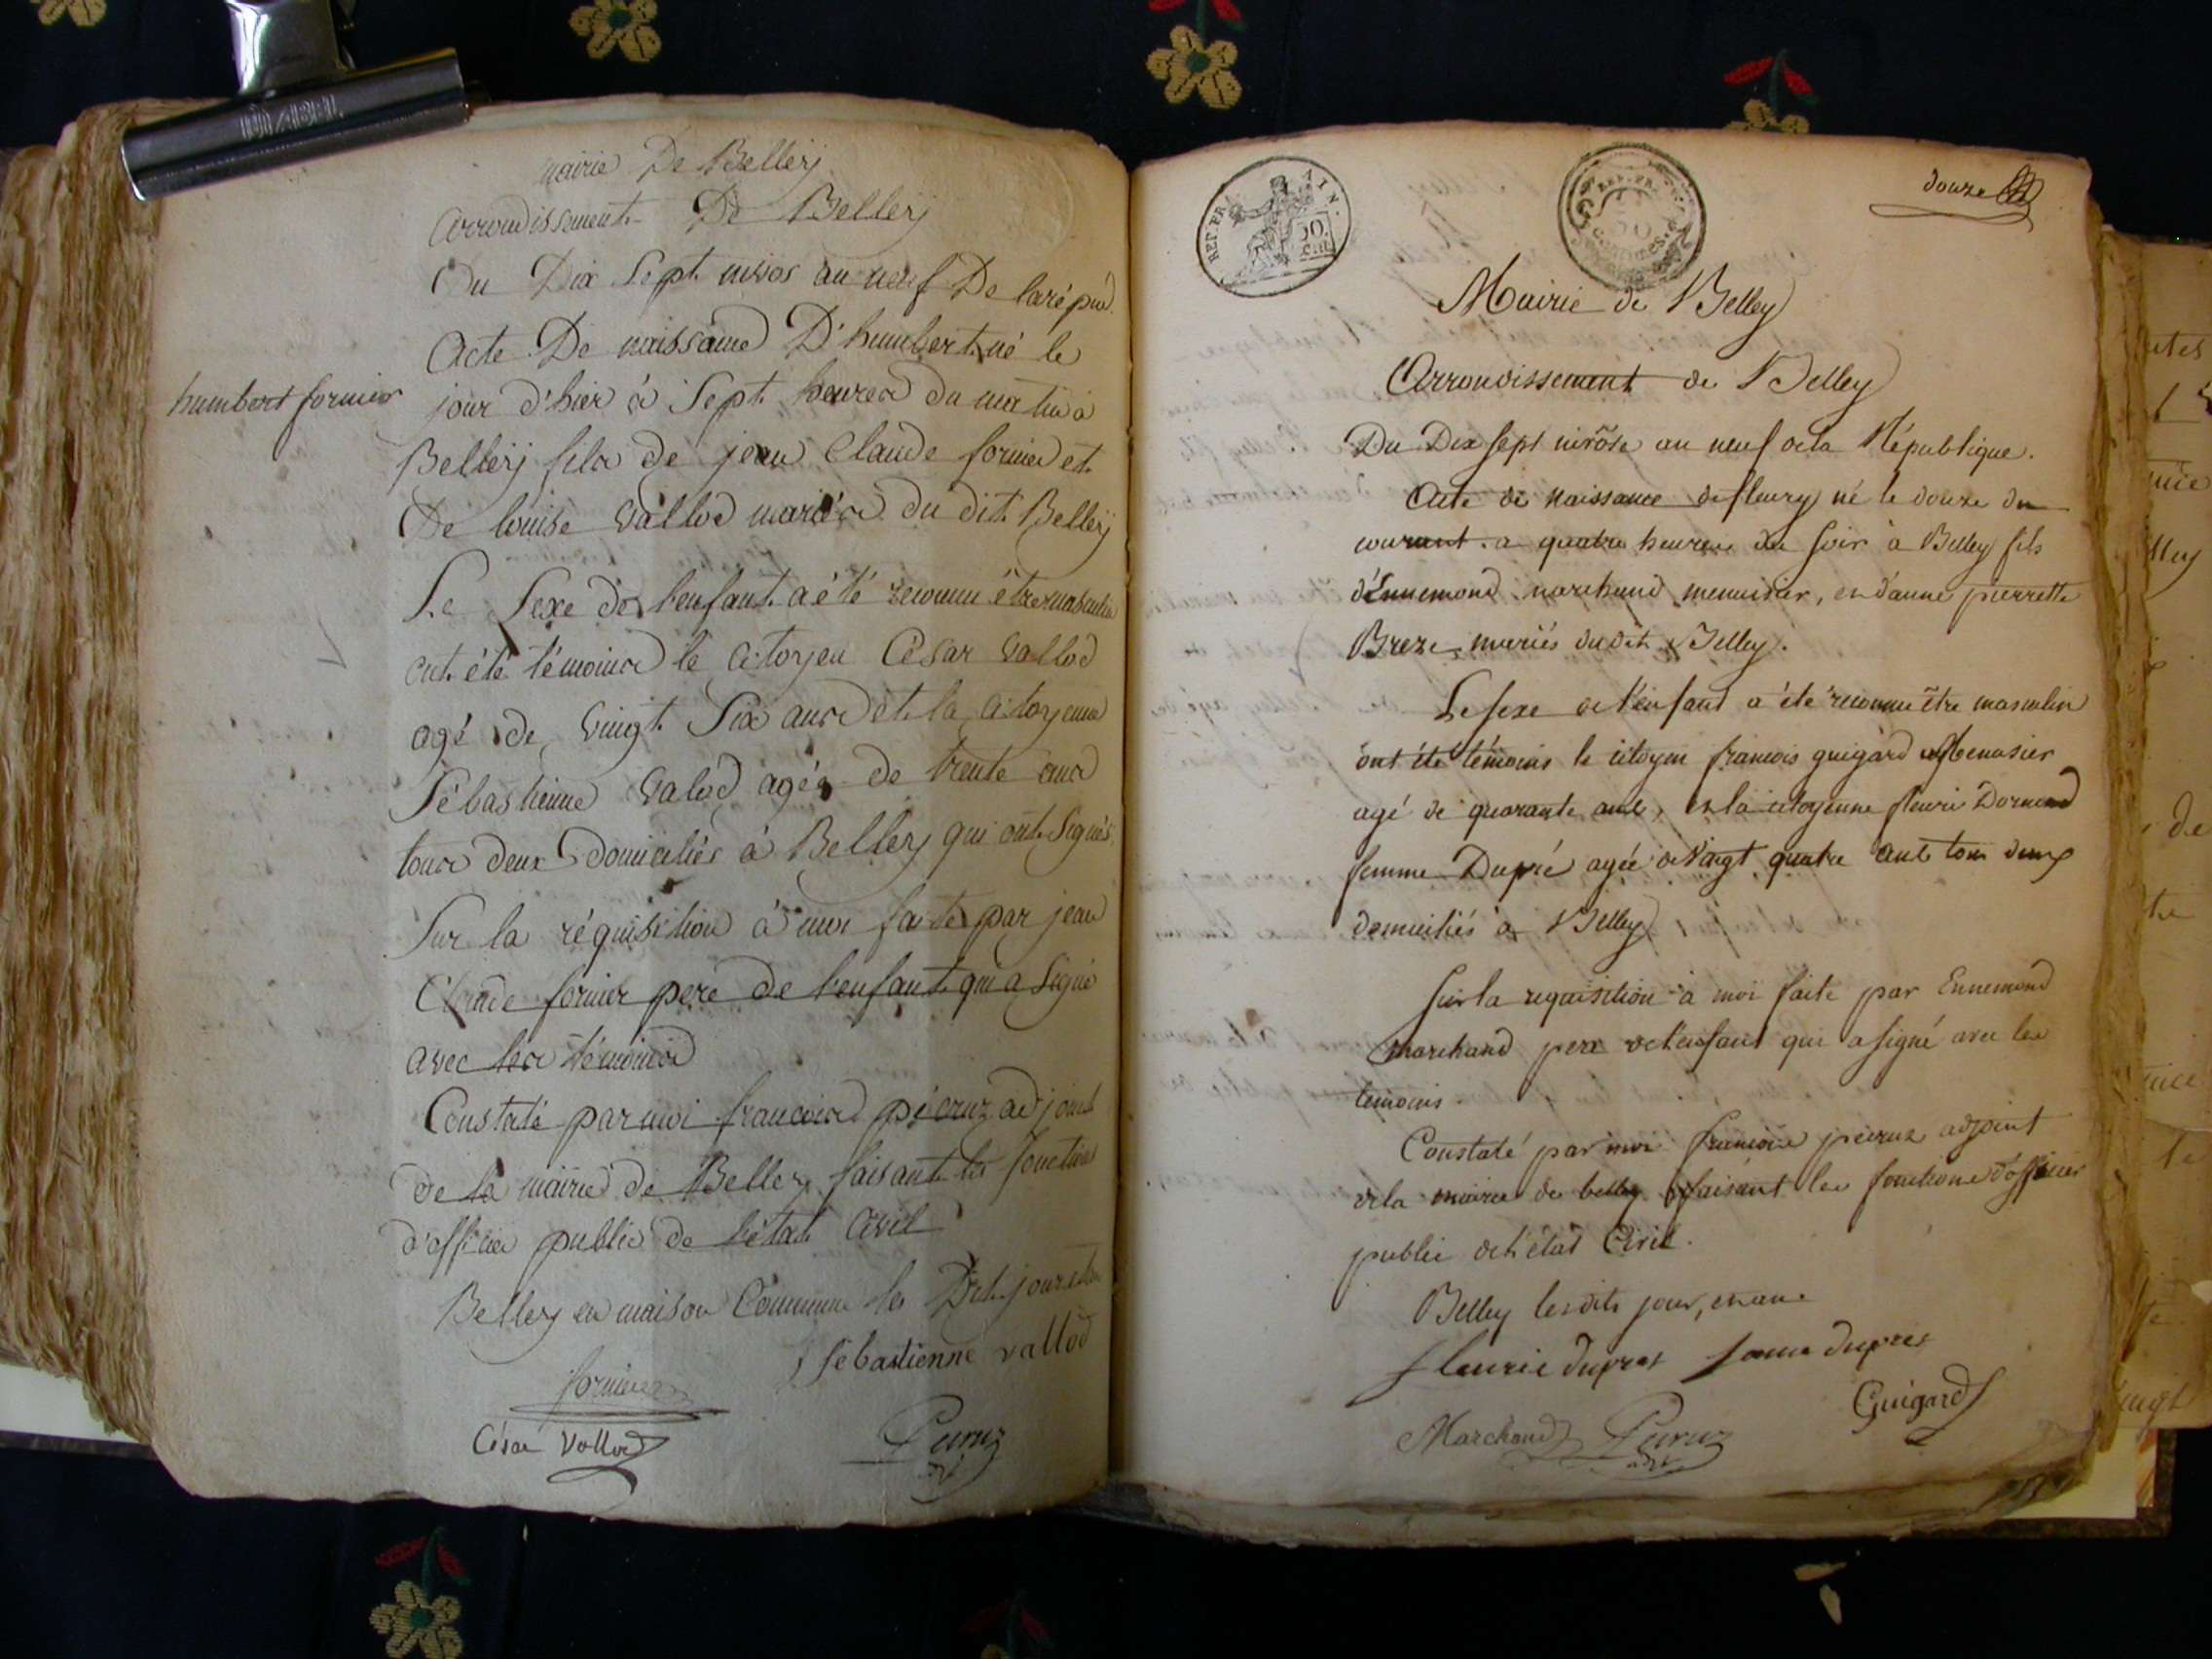 mairie De Belleÿ
Arrondissement De Belleÿ
Du Dix Sept nivos an neuf De larépud.
Acte De naissance D'humbert né le
humbert fornier
jour d'hier à Sept heures du matin à
Belleÿ fils de jean Claude fornier et
De louise vallod mariés du dit Belleÿ
Le Sexe de l'enfant a été reconnu être masculin
ont été témoins le citoyen César vallod
agé de vingt Six ans et la citoyenne
Sébastienne valod agée de trente ans
tous deux domiciliés à Belley qui ont Signés
Sur la réquisition à moi faite par jean
Claude fornier pere de l'enfant qui a Signé
avec les témoins
Constaté par moi francois péeruz adjoint
de la mairie de Belley faisant les fonctions
d'officier public de l'état Civil
Belley en maison Commune les Dit jour et an
Sébastienne vallod
fornier
César Vallod
Peeruz
adj
REP. FRA
douze
Mairie de Belley
Arrondissement de Belley
Du Dix sept nivôse an neuf dela République.
Acte de naissance de fleury né le douze du
courant a quatre heures du soir à Belley fils
d'Ennemond marchand menuisier, et d'anne pierrette
Breze mariés dudit Belley.
Le sexe de l'enfant a été reconnu être masculin
ont été témoins le citoyen francois guigard
agé de quarante ans, et la citoyenne fleurie Dornend
femme Dupré agée de vingt quatre ans tous deux
domiciliés à Belley
Sur la requisition à moi faite par Ennemond
marchand pere de l'enfant qui a signé avec les
temoins.
Constaté par moi francois péeruz adjoint
de la mairie de belley faisant les fonctions d'officier
public de l'état Civil.
Belley lesdits jour, et an
fleurie dupres fame dupres
Guigard
Marchand Peeruz
adj